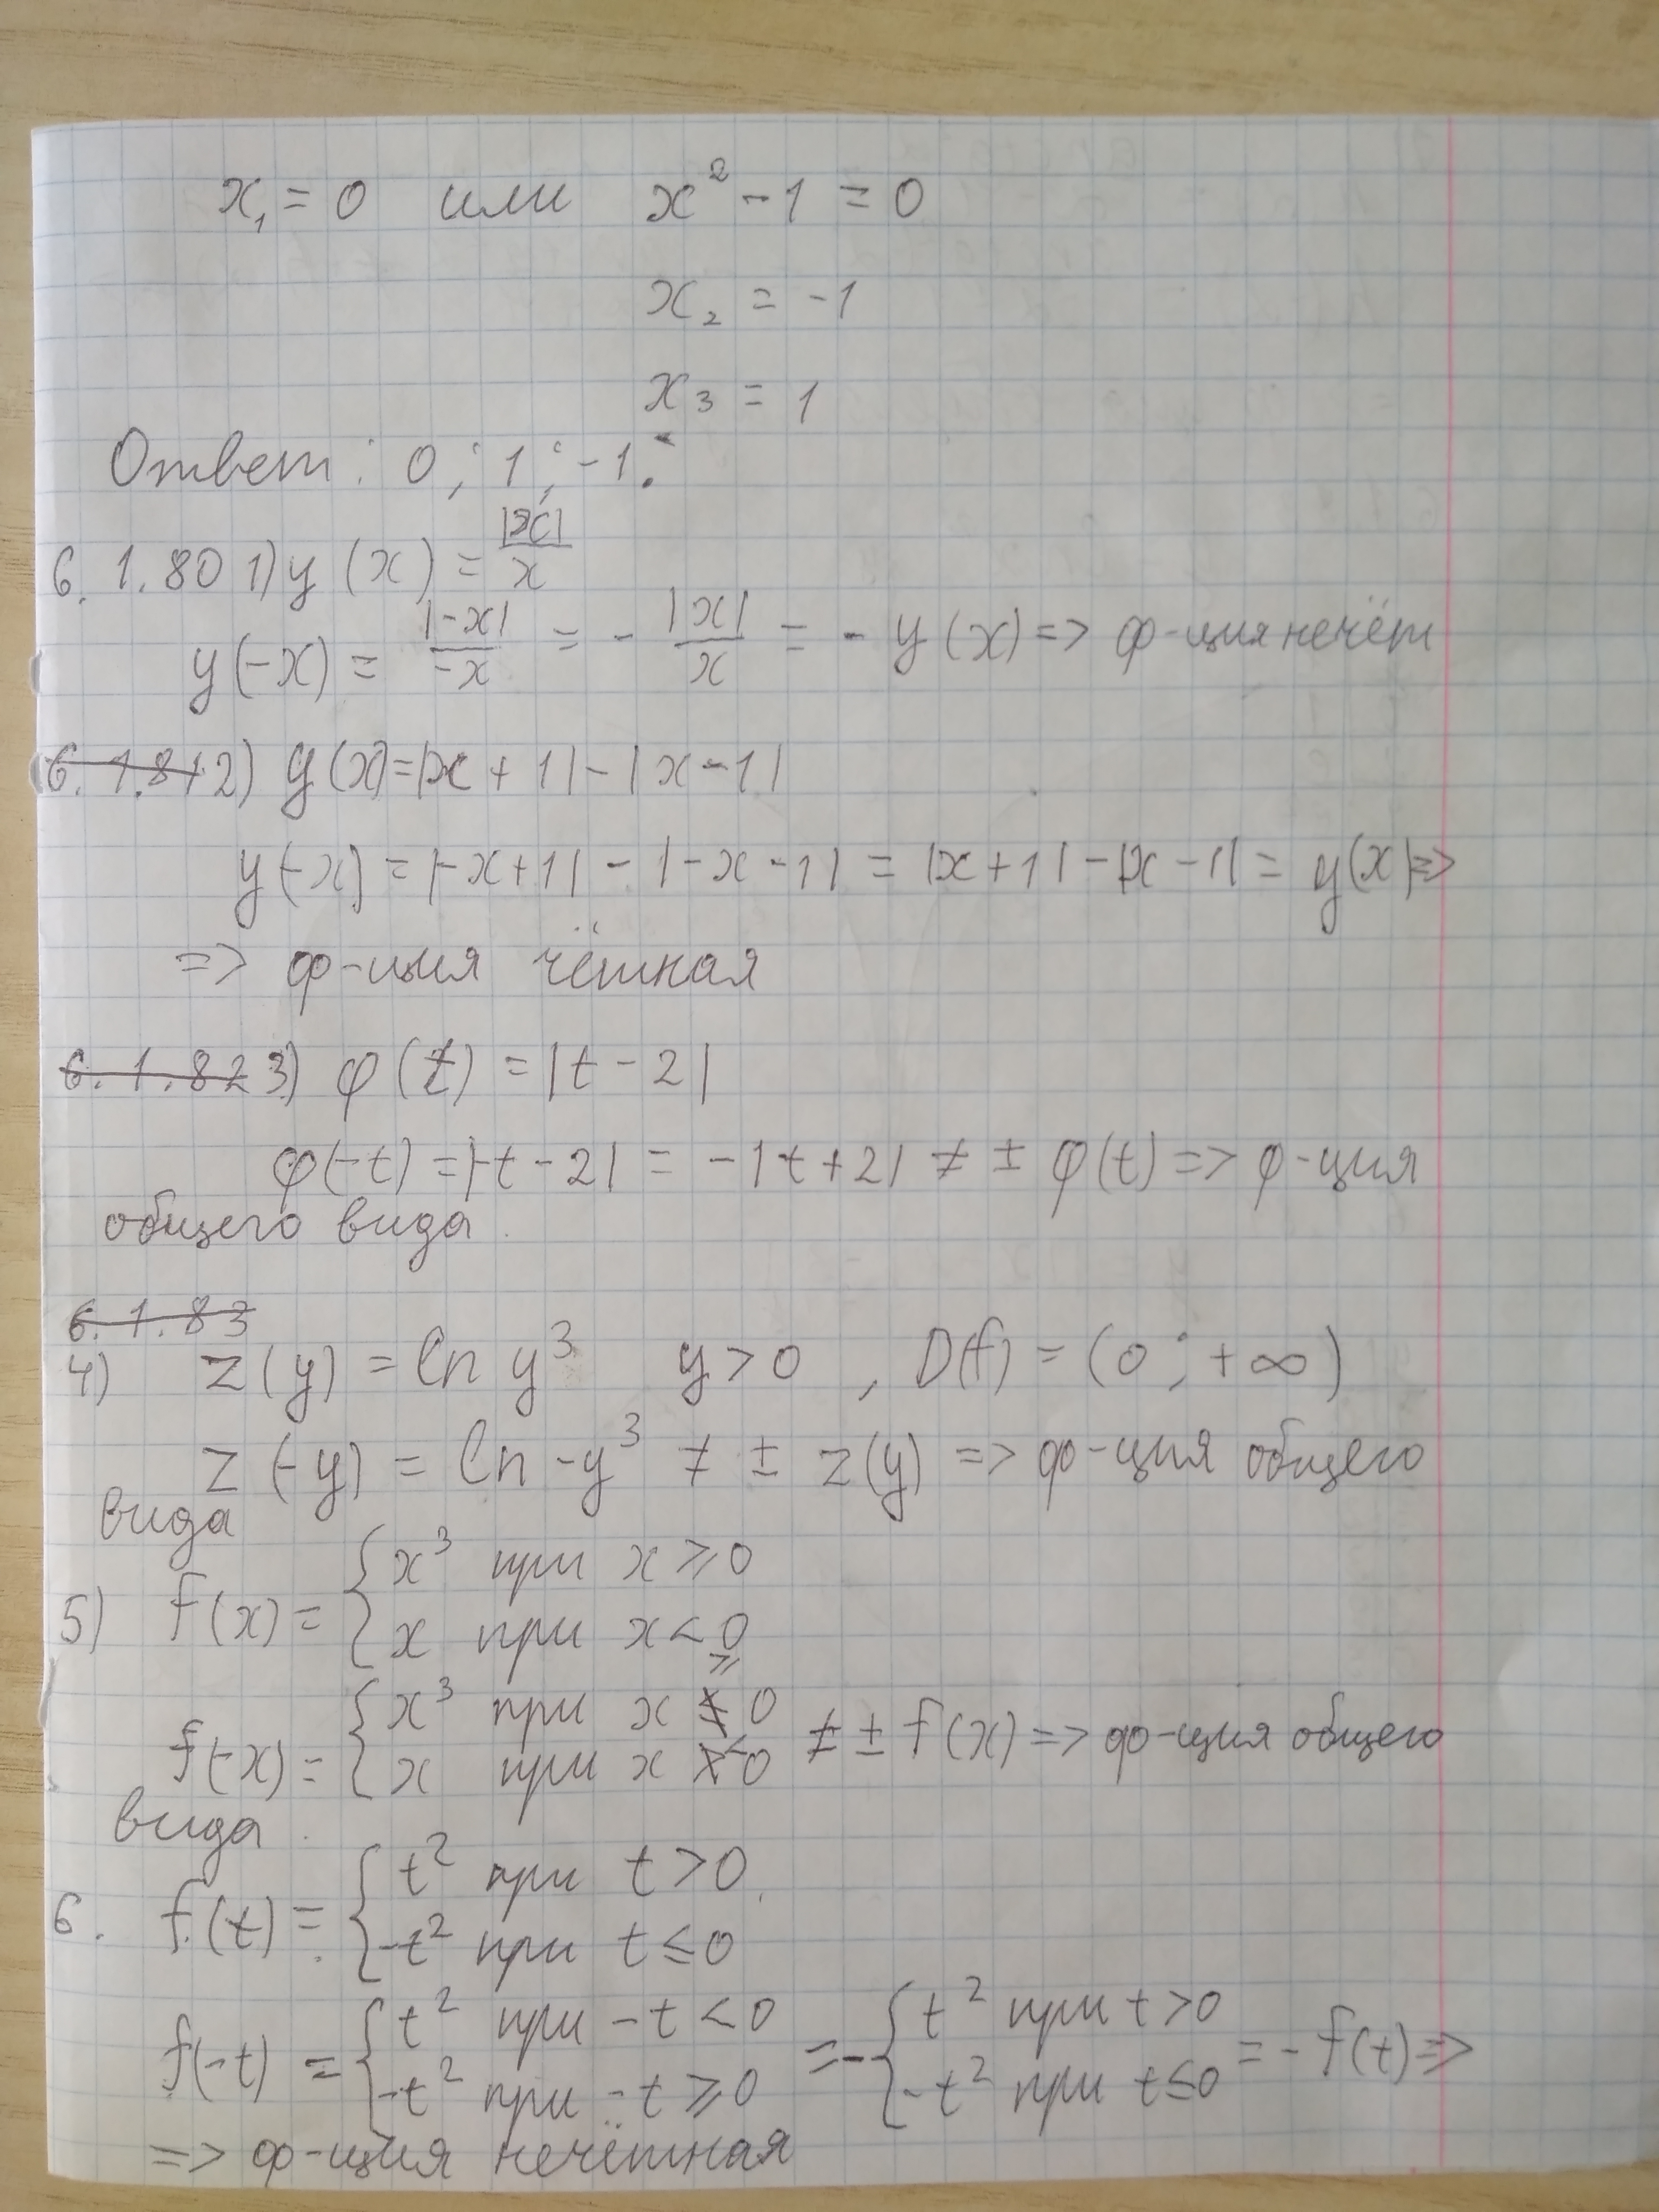 x₁ = 0 или x² - 1 = 0
x₂ = -1
x₃ = 1
Ответ: 0; 1; -1.
6.1.80 1) y(x) = |x|/x
y(-x) = |-x|/-x = - |x|/x = - y(x) => ф-ция нечёт
6.1.81 2) y(x) = |x + 1| - |x - 1|
y(-x) = |-x + 1| - |-x - 1| = |x + 1| - |x - 1| = y(x) =>
=> ф-ция чётная
6.1.82 3) φ(t) = |t - 2|
φ(-t) = |-t - 2| = -|t + 2| ≠ ± φ(t) => ф-ция
общего вида.
6.1.83
4) z(y) = ln y³ y > 0 , D(f) = (0; +∞)
z(-y) = ln -y³ ≠ ± z(y) => ф-ция общего
вида
5) f(x) = { x³ при x ≥ 0
x при x < 0
f(-x) = { x³ при x ≥ 0
x при x < 0 ≠ ± f(x) => ф-ция общего
вида.
6. f(t) = { t² при t > 0
-t² при t ≤ 0
f(-t) = { t² при -t < 0
-t² при -t ≥ 0 = - { t² при t > 0
-t² при t ≤ 0 = - f(t) =>
=> ф-ция нечётная